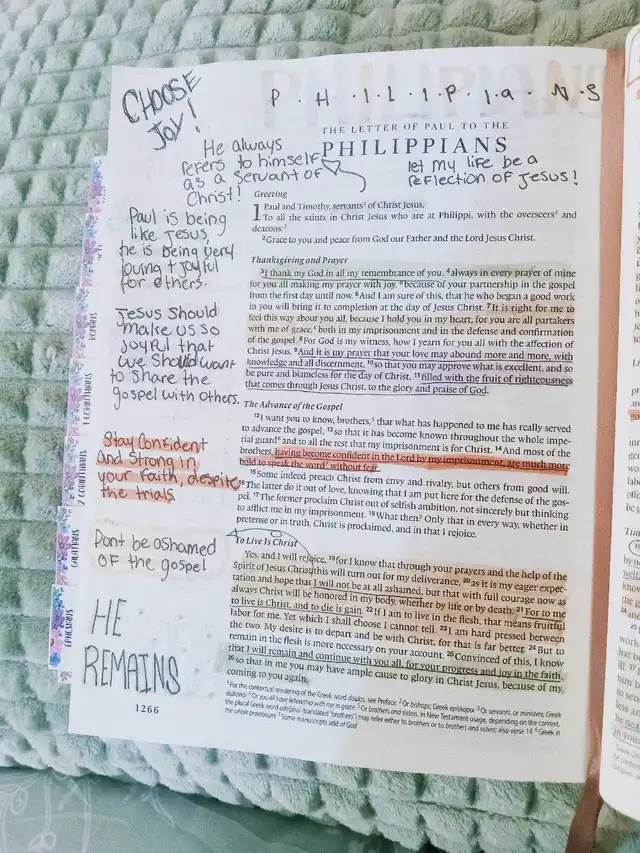 CHOOSE
JOY!
P.H.I.L.I.P.I.a.N.S
THE LETTER OF PAUL TO THE
PHILIPPIANS
He always
refers to himself
as a servant of
Christ!
let my life be a
reflection of Jesus!
Paul is being
like Jesus,
he is being very
loving + joyful
for others.
Jesus should
make us so
joyful that
we should want
to share the
gospel with others.
Stay Confident
and Strong in
your faith, despite
the trials.
Dont be ashamed
OF the gospel
HE
REMAINS
1266
CORINTHIANS
2 CORINTHIANS
GALATIANS
EPHESIANS
Greeting
1 Paul and Timothy, servants of Christ Jesus,
To all the saints in Christ Jesus who are at Philippi, with the overseers and
deacons:
2 Grace to you and peace from God our Father and the Lord Jesus Christ.
Thanksgiving and Prayer
3 I thank my God in all my remembrance of you, 4 always in every prayer of mine
for you all making my prayer with joy, 5 because of your partnership in the gospel
from the first day until now. 6 And I am sure of this, that he who began a good work
in you will bring it to completion at the day of Jesus Christ. 7 It is right for me to
feel this way about you all, because I hold you in my heart, for you are all partakers
with me of grace, both in my imprisonment and in the defense and confirmation
of the gospel. 8 For God is my witness, how I yearn for you all with the affection of
Christ Jesus. 9 And it is my prayer that your love may abound more and more, with
knowledge and all discernment, 10 so that you may approve what is excellent, and so
be pure and blameless for the day of Christ, 11 filled with the fruit of righteousness
that comes through Jesus Christ, to the glory and praise of God.
The Advance of the Gospel
12 I want you to know, brothers, that what has happened to me has really served
to advance the gospel, 13 so that it has become known throughout the whole impe-
rial guard and to all the rest that my imprisonment is for Christ. 14 And most of the
brothers, having become confident in the Lord by my imprisonment, are much more
bold to speak the word without fear.
15 Some indeed preach Christ from envy and rivalry, but others from good will.
16 The latter do it out of love, knowing that I am put here for the defense of the gos-
pel. 17 The former proclaim Christ out of selfish ambition, not sincerely but thinking
to afflict me in my imprisonment. 18 What then? Only that in every way, whether in
pretense or in truth, Christ is proclaimed, and in that I rejoice.
To Live Is Christ
Yes, and I will rejoice, 19 for I know that through your prayers and the help of the
Spirit of Jesus Christ this will turn out for my deliverance, 20 as it is my eager expec-
tation and hope that I will not be at all ashamed, but that with full courage now as
always Christ will be honored in my body, whether by life or by death. 21 For to me
to live is Christ, and to die is gain. 22 If I am to live in the flesh, that means fruitful
labor for me. Yet which I shall choose I cannot tell. 23 I am hard pressed between
the two. My desire is to depart and be with Christ, for that is far better. 24 But to
remain in the flesh is more necessary on your account. 25 Convinced of this, I know
that I will remain and continue with you all, for your progress and joy in the faith,
26 so that in me you may have ample cause to glory in Christ Jesus, because of my
coming to you again.
1 For the contextual rendering of the Greek word doulos, see Preface 2 Or bishops; Greek episkopoi 3 Or servants, or ministers; Greek
diakonoi 4 Or you all have fellowship with me in grace 5 Or brothers and sisters. In New Testament usage, depending on the context,
the plural Greek word adelphoi (translated "brothers") may refer either to brothers or to brothers and sisters; also verse 14 6 Greek in
the whole praetorium 7 Some manuscripts add of God